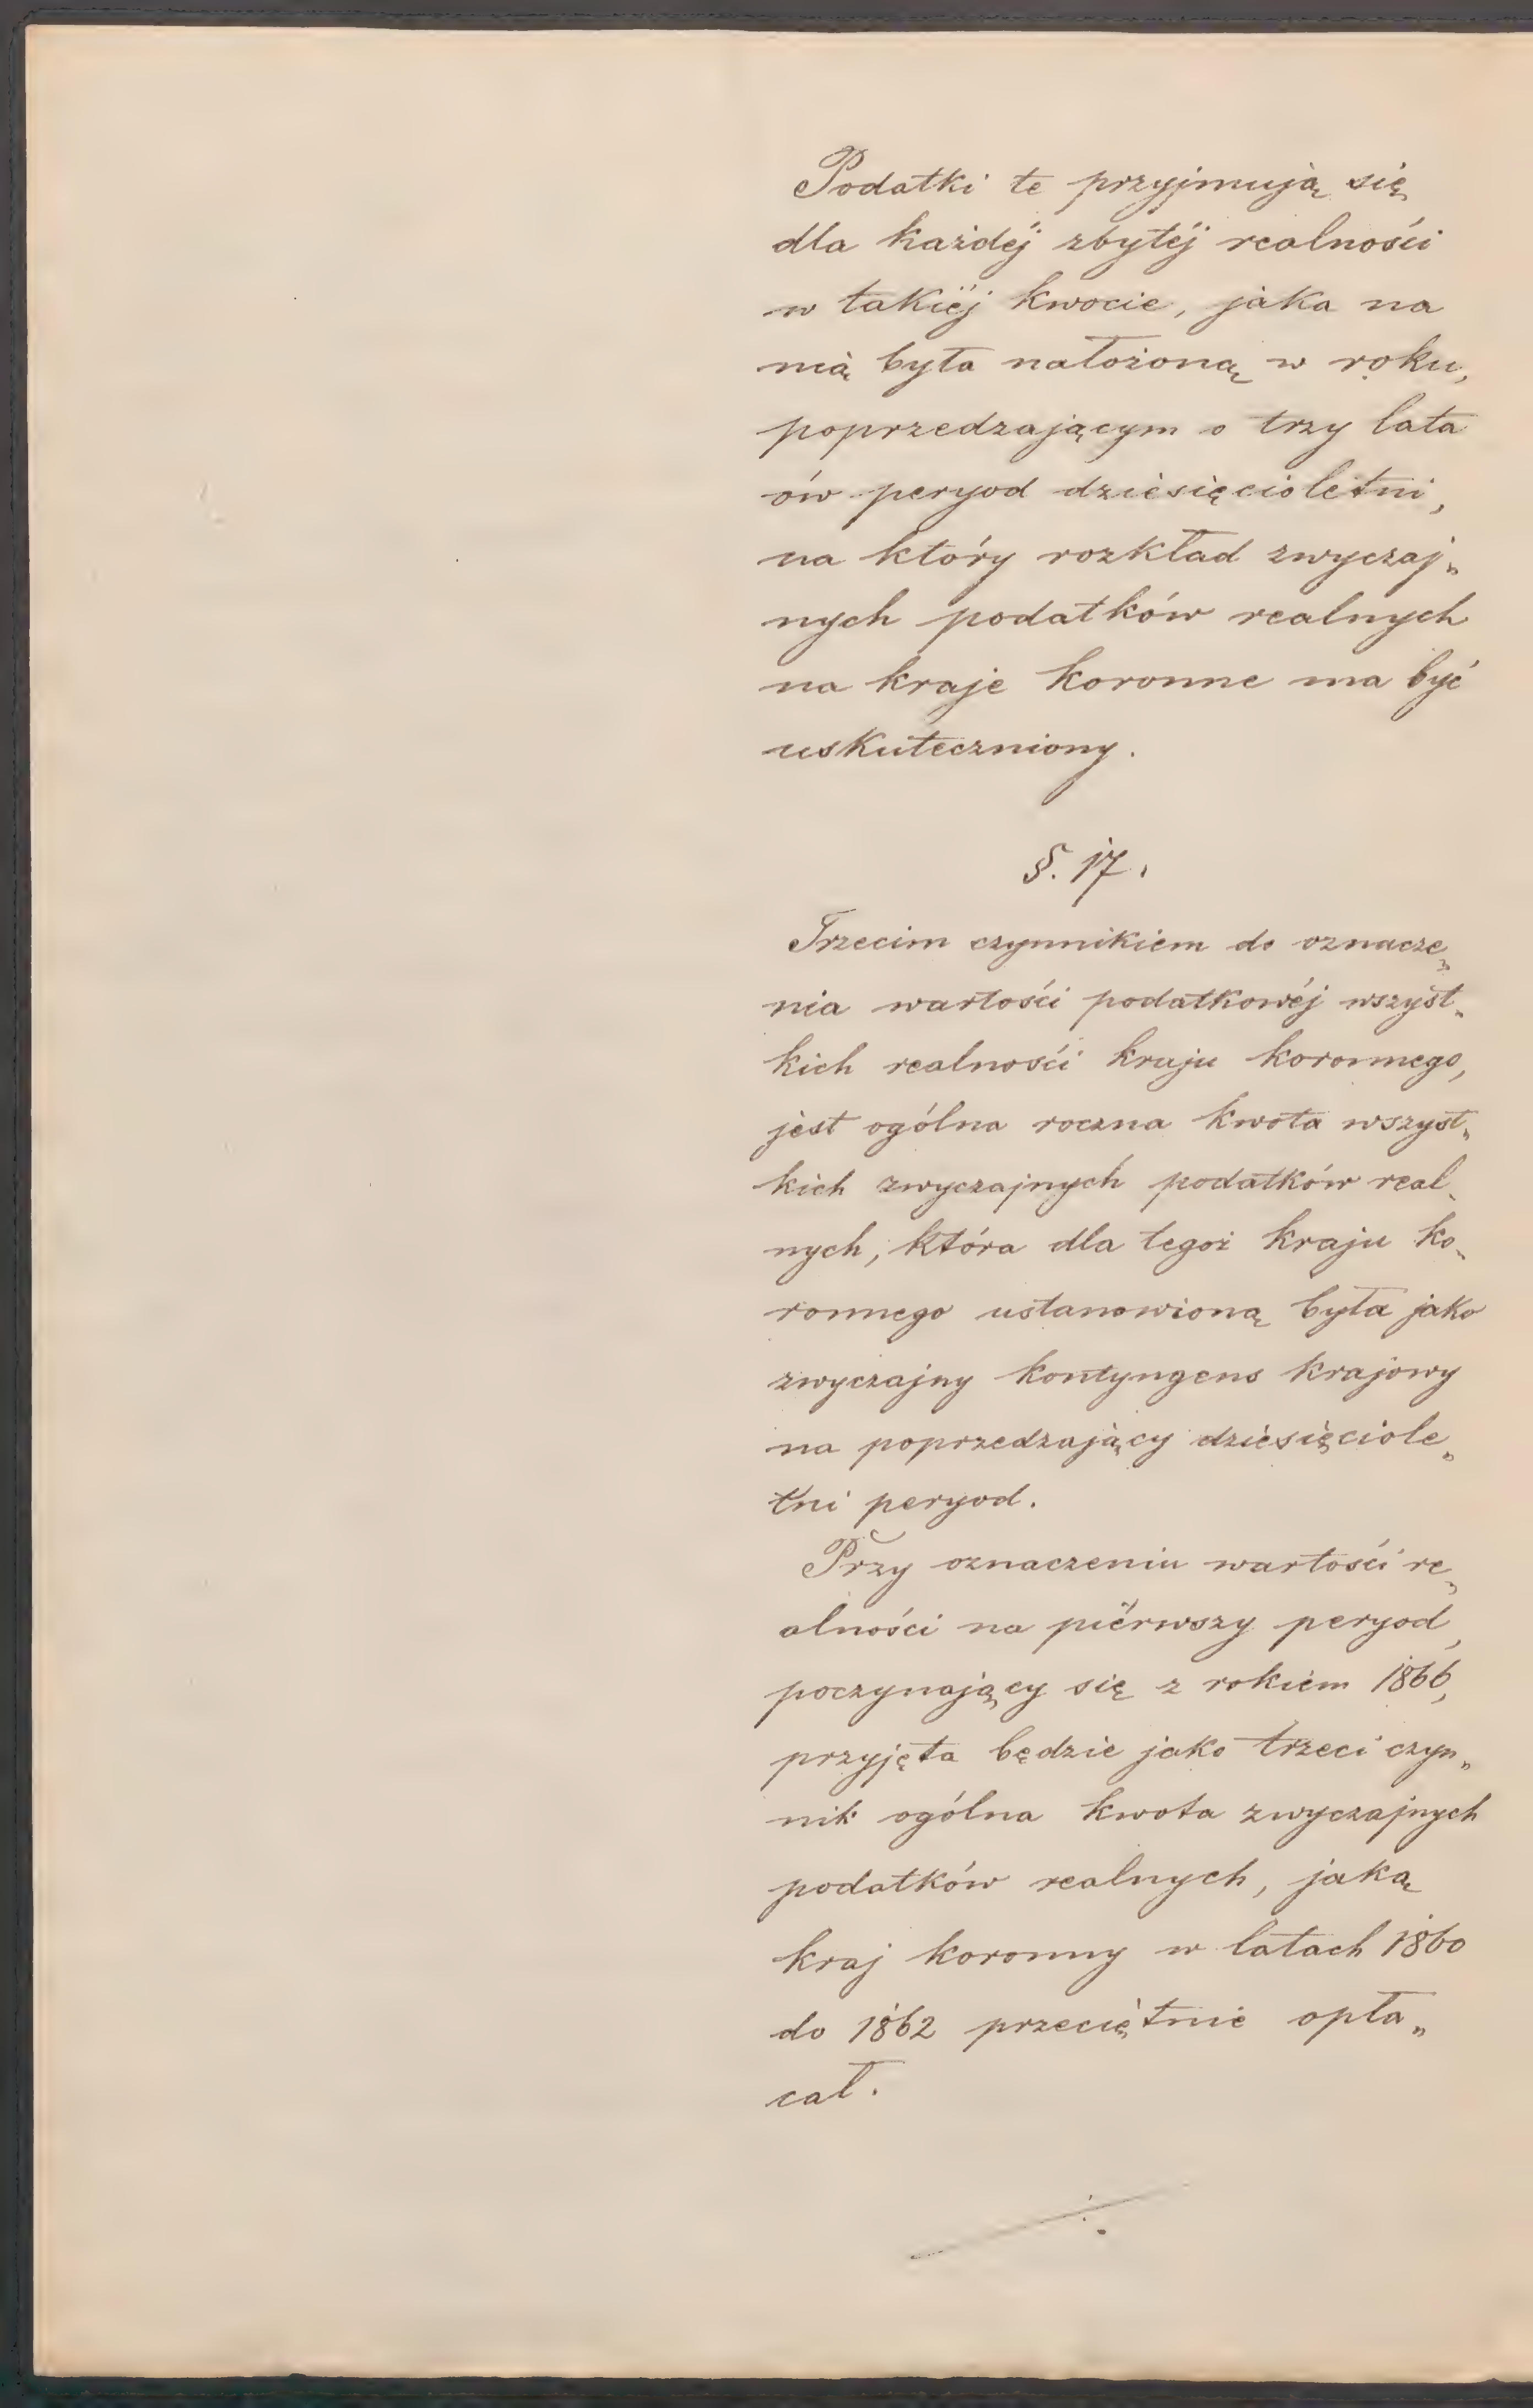 Podatki te przyjmują się
dla każdéj zbytéj realności
w takiéj kwocie, jaka na
nią była nałożoną w roku,
poprzedzającym o trzy lata
ów peryod dziesięcioletni,
na który rozkład zwyczaj„
nych podatków realnych
na kraje koronne ma być
uskuteczniony.
§. 17.
Trzecim czynnikiem do oznacze„
nia wartości podatkowéj wszyst„
kich realności kraju koronnego,
jest ogólna roczna kwota wszyst„
kich zwyczajnych podatków real„
nych, która dla tegoż kraju ko„
ronnego ustanowioną była jako
zwyczajny kontyngens krajowy
na poprzedzający dziesięciole„
tni peryod.
Przy oznaczeniu wartości re„
alności na piérwszy peryod,
poczynający się z rokiem 1866,
przyjęta będzie jako trzeci czyn„
nik ogólna kwota zwyczajnych
podatków realnych, jaką
kraj koronny w latach 1860
do 1862 przeciętnie opła„
cał.